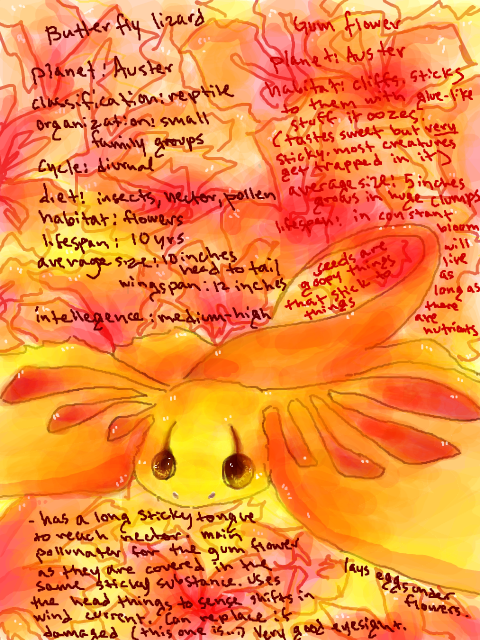 Butterfly lizard
planet: Auster
classification: reptile
organization: small
family groups
Cycle: diurnal
diet: insects, nectar, pollen
habitat: flowers
lifespan: 10 yrs
average size: 10 inches
head to tail
wingspan: 12 inches
intellegence: medium-high
Gum flower
planet: Auster
habitat: cliffs, sticks
to them with glue-like
stuff it oozes.
(tastes sweet but very
sticky. most creatures
get trapped in it)
average size: 5 inches
grows in huge clumps
lifespan: in constant
bloom
will
live
as
long as
there
are
nutrients
seeds are
goopy things
that stick to
things
- has a long sticky tongue
to reach nectar. main
pollunater for the gum flower
as they are covered in the
same sticky substance. uses
the head things to sense shifts in
wind current. Can replace if
damaged (this one is...) Very good eyesight.
lays eggs under
flowers.